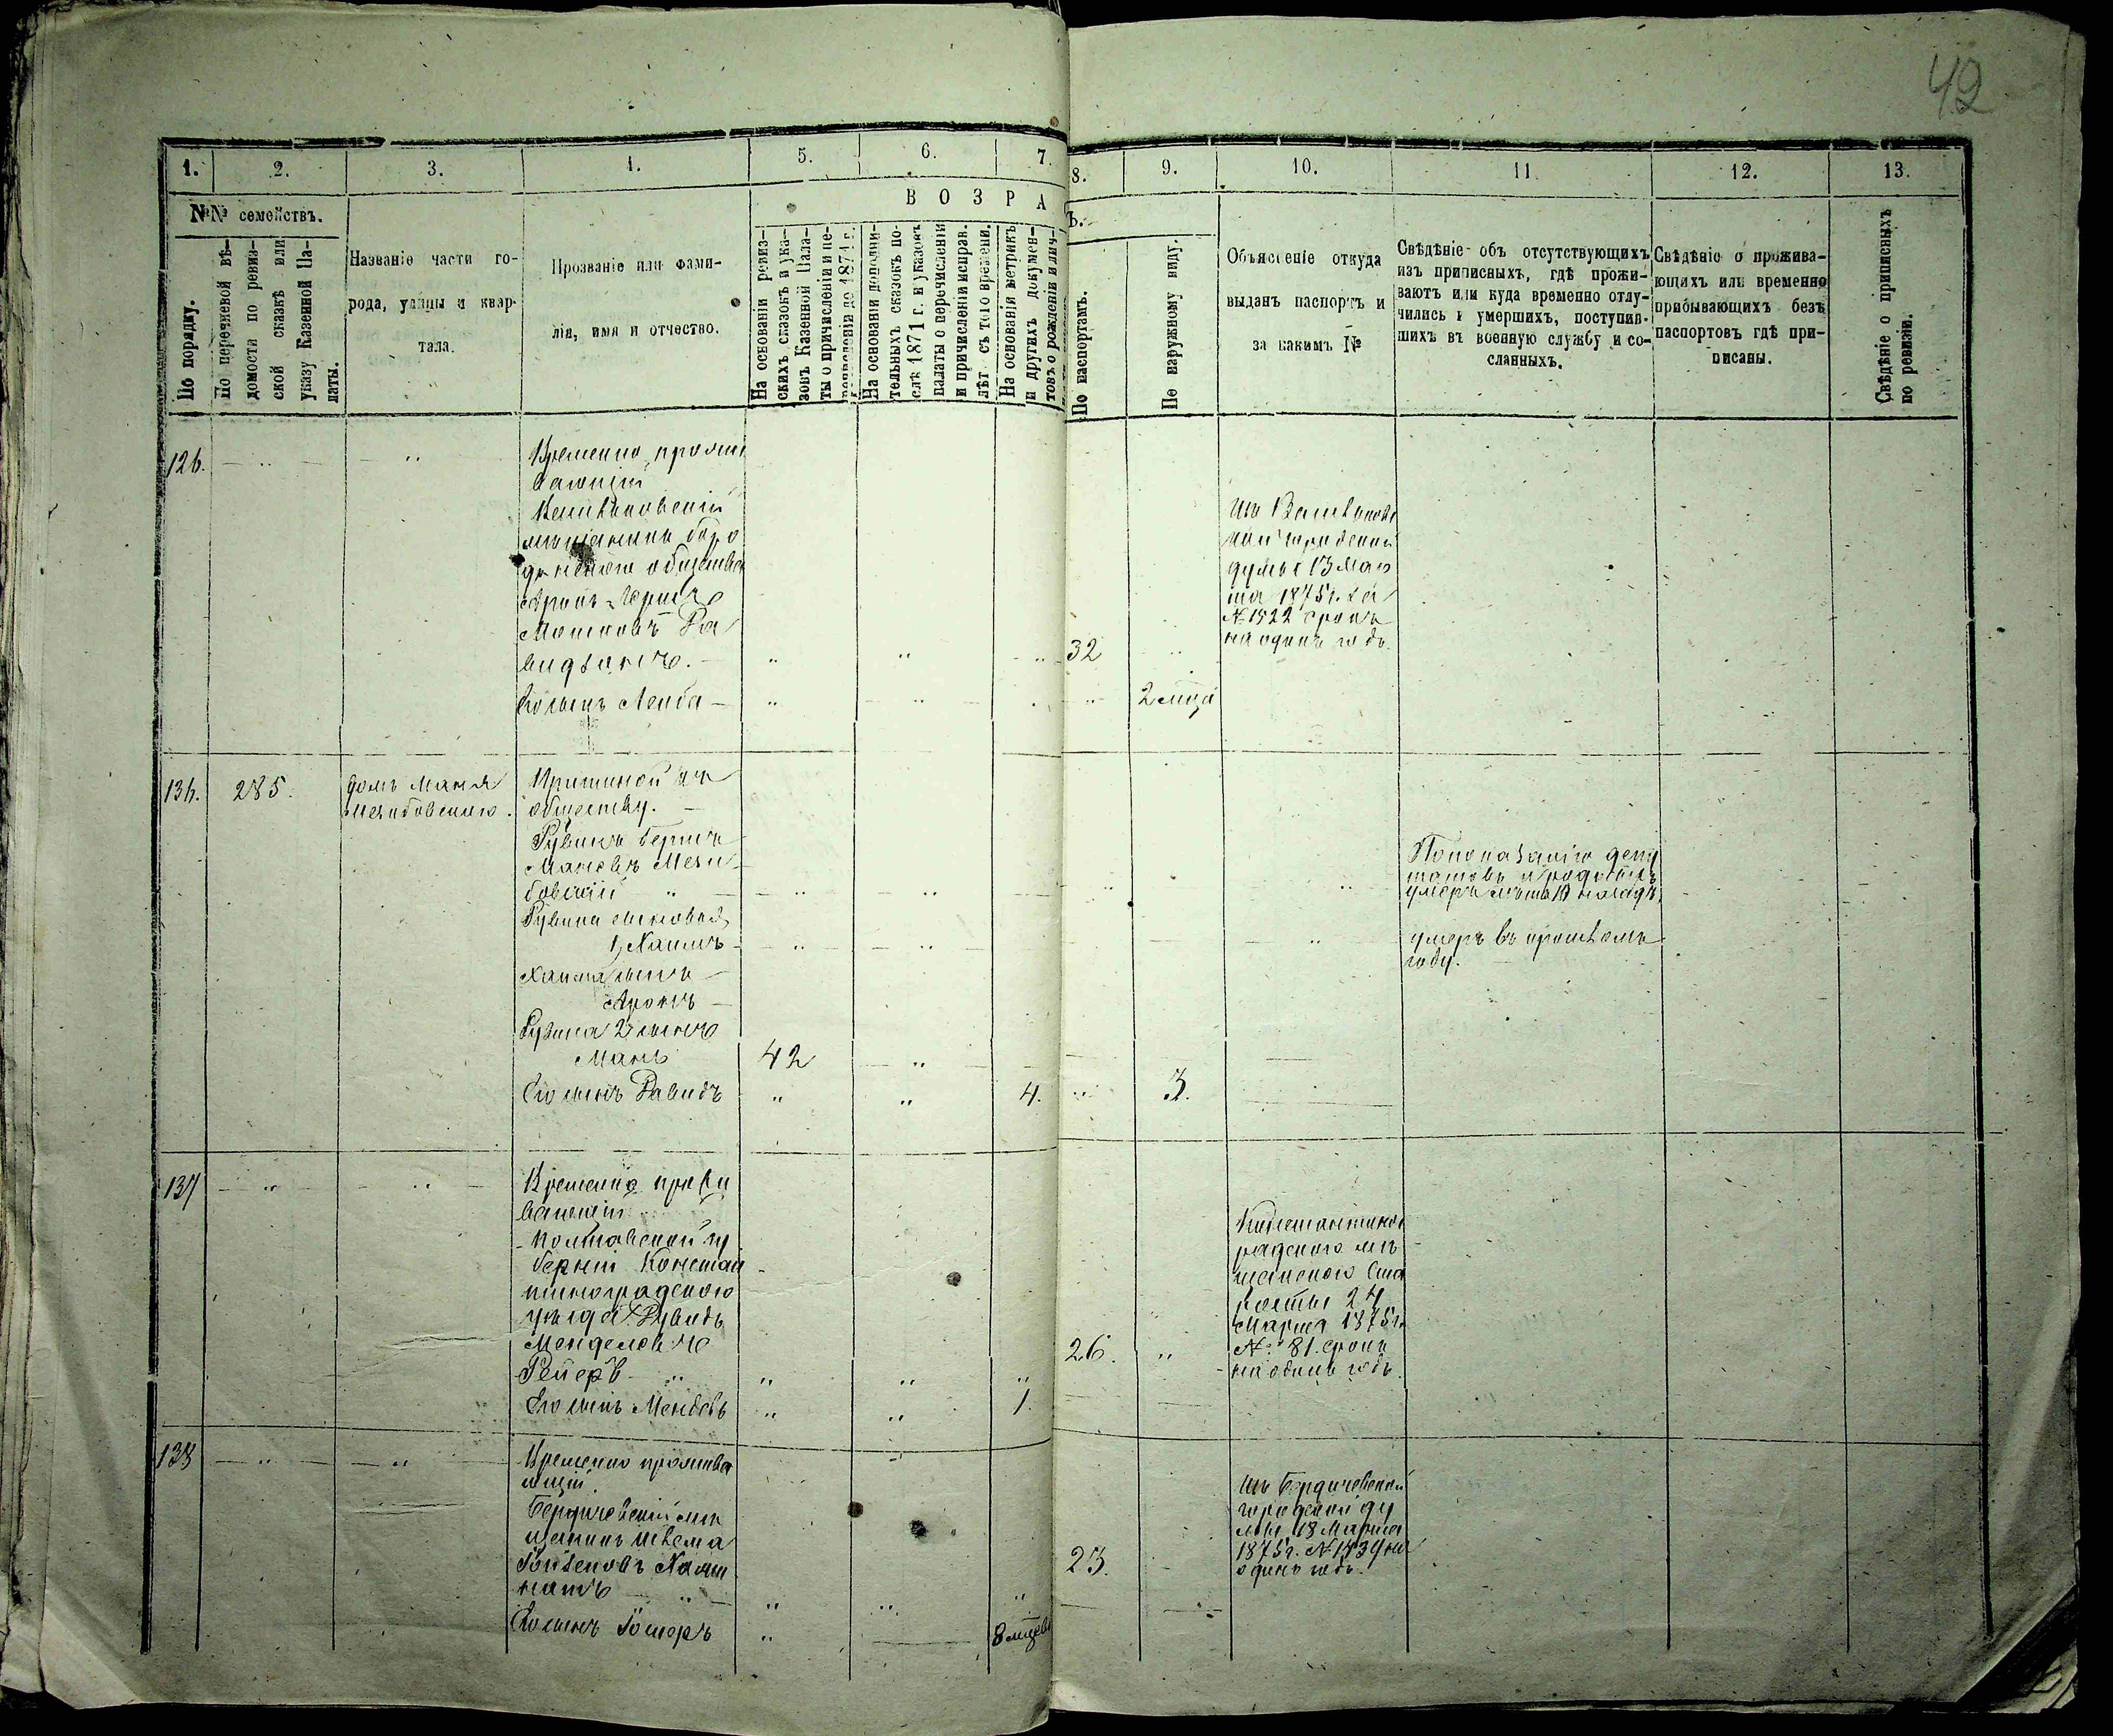 42
1. 2. 3. 4. 5. 6. 7. 8. 9. 10. 11. 12. 13.
№№ семействъ.
По порядку.
По перечневой вѣ-
домости по ревиз-
ской сказкѣ или
указу Казенной Па-
латы.
Названіе части го-
рода, улицы и квар-
тала.
Прозваніе или фами-
лія, имя и отчество.
ВОЗРА
Ъ.
На основаніи ревиз-
скихъ сказокъ и ука-
зовъ Казенной Пала-
ты о причисленіи и пе-
речисленіи до 1871 г.
На основаніи дополни-
тельныхъ сказокъ по-
слѣ 1871 г. и указовъ
палаты о перечисленіи
и причисленіи исправ.
лѣт съ того времени.
На основаніи метрикъ
и другихъ докумен-
товъ о рожденіи и лич-
По паспортамъ.
По наружному виду.
Объясненіе откуда
выданъ паспортъ и
за какимъ №
Свѣдѣніе объ отсутствующихъ
изъ приписныхъ, гдѣ прожи-
ваютъ или куда временно отлу-
чились и умершихъ, поступив-
шихъ въ военную службу и со-
сланныхъ.
Свѣдѣніе о прожива-
ющихъ или временно
прибывающихъ безъ
паспортовъ гдѣ при-
писаны.
Свѣдѣніе о приписныхъ
по ревизіи.
126.
Временно прожи
вающій
мѣщанинъ
общества
Аронъ
Мошковъ Да
видзонъ.
32
городской
думы 13 мар
та 1875 г. за
№ 1522 срокъ
на одинъ годъ.
Его сынъ Лейба
2 м-ца
136. 285.
домъ Маня
Межибовскаго.
обществу.
Рувинъ Беркъ
Мановъ Межи
бовскій
По показанію депу
татовъ и родствен
умеръ
Рувина сыновья
1, Хаимъ
умеръ въ прошломъ
году.
Хаима сынъ
Аронъ
Рувина 2 сынъ
Манъ 42
Его сынъ Давидъ 4. 3.
137
Временно прожи
вающій
Полтавской гу
берніи Констан
тиноградскаго
уѣзда Рувидъ
Менделевъ
Рейеръ
26.
Константино
радскаго мѣ
щанскаго Ста
росты 24
Марта 1875 г.
№ 81. срокъ
на одинъ годъ.
Его сынъ Мендель 1.
138
Временно прожива
ющій
Бердичевскій мѣ
щанинъ Шлема
23.
Изъ Бердичевской
городской ду
мы 18 Марта
1875 г. № 1534 на
одинъ годъ.
Его сынъ 8 м-цевъ